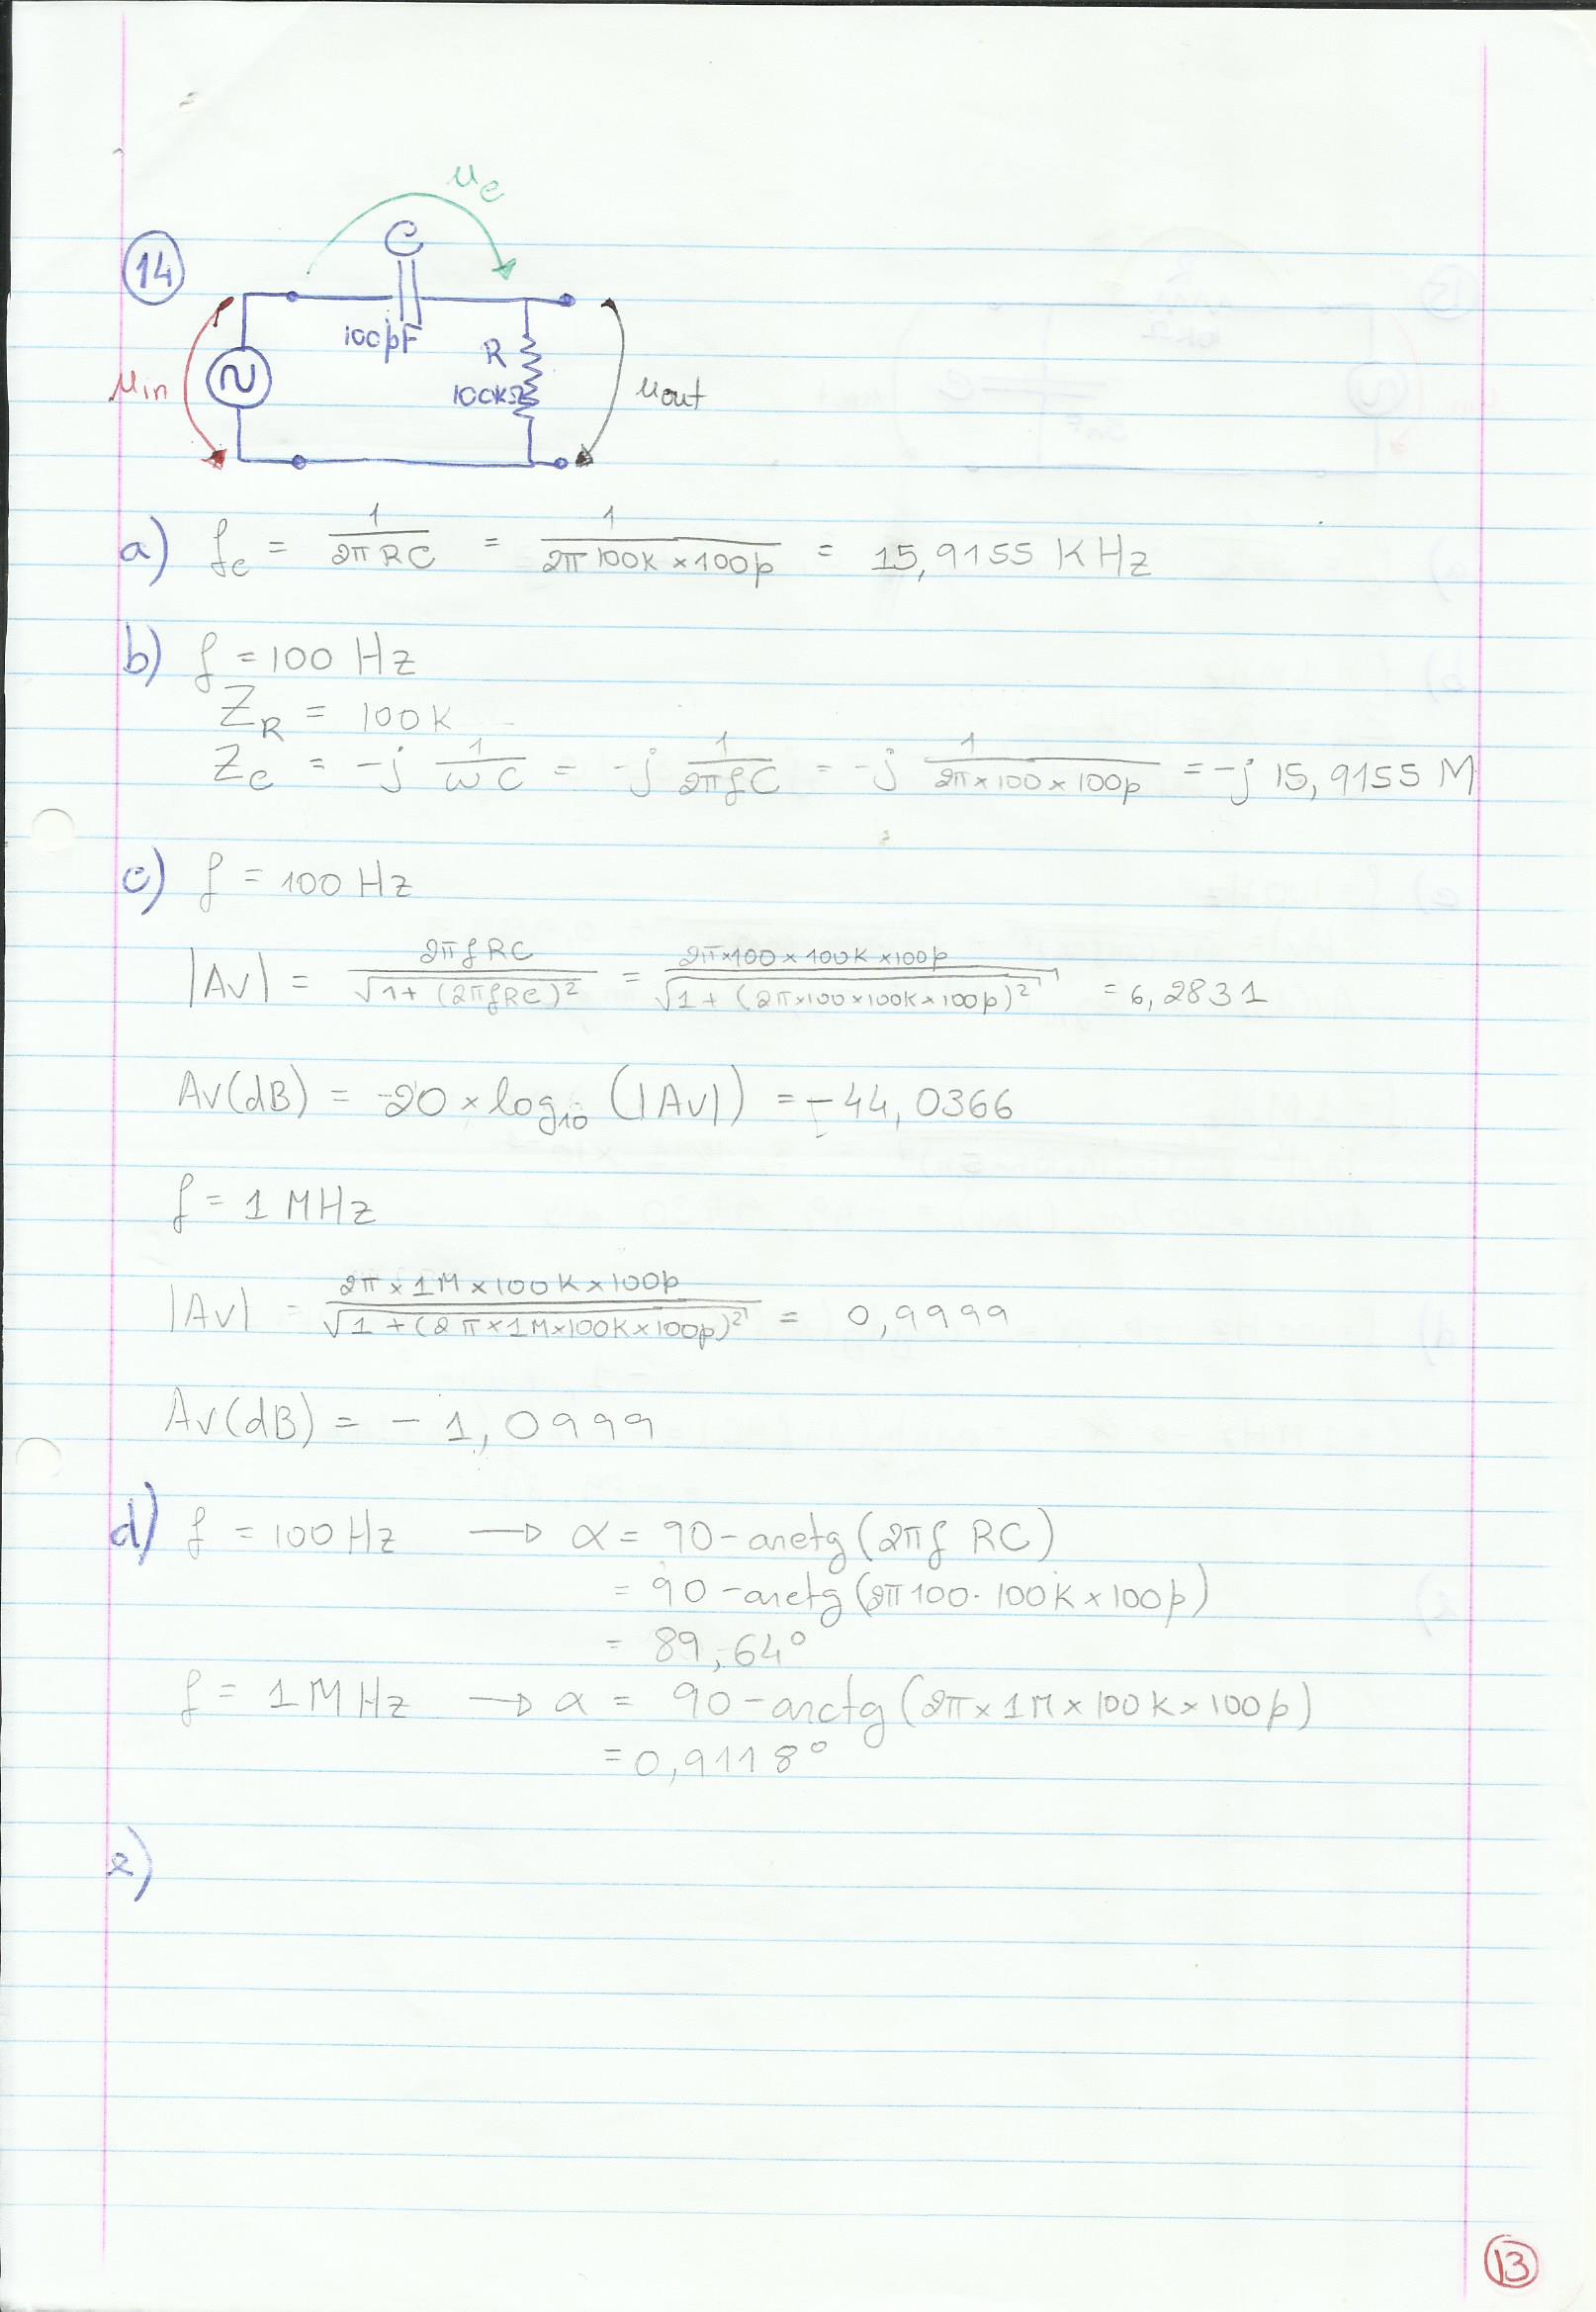 uc
C
14
100pF
R
100kΩ
uin
uout
a) fc = 1/(2π RC) = 1/(2π 100K × 100p) = 15,9155 KHz
b) f = 100 Hz
ZR = 100K
Zc = -j 1/(ωC) = -j 1/(2πfC) = -j 1/(2π×100×100p) = -j 15,9155 M
c) f = 100 Hz
|Av| = 2πfRC/√(1+(2πfRC)²) = 2π×100×100K×100p/√(1+(2π×100×100K×100p)²) = 6,2831
Av(dB) = -20 × log10 (|Av|) = -44,0366
f = 1 MHz
|Av| = 2π×1M×100K×100p/√(1+(2π×1M×100K×100p)²) = 0,9999
Av(dB) = - 1,0999
d) f = 100 Hz → α = 90-arctg(2πf RC)
= 90-arctg(2π100· 100K×100p)
= 89,64°
f = 1MHz → α = 90-arctg(2π×1M×100K×100p)
= 0,9118°
e)
13